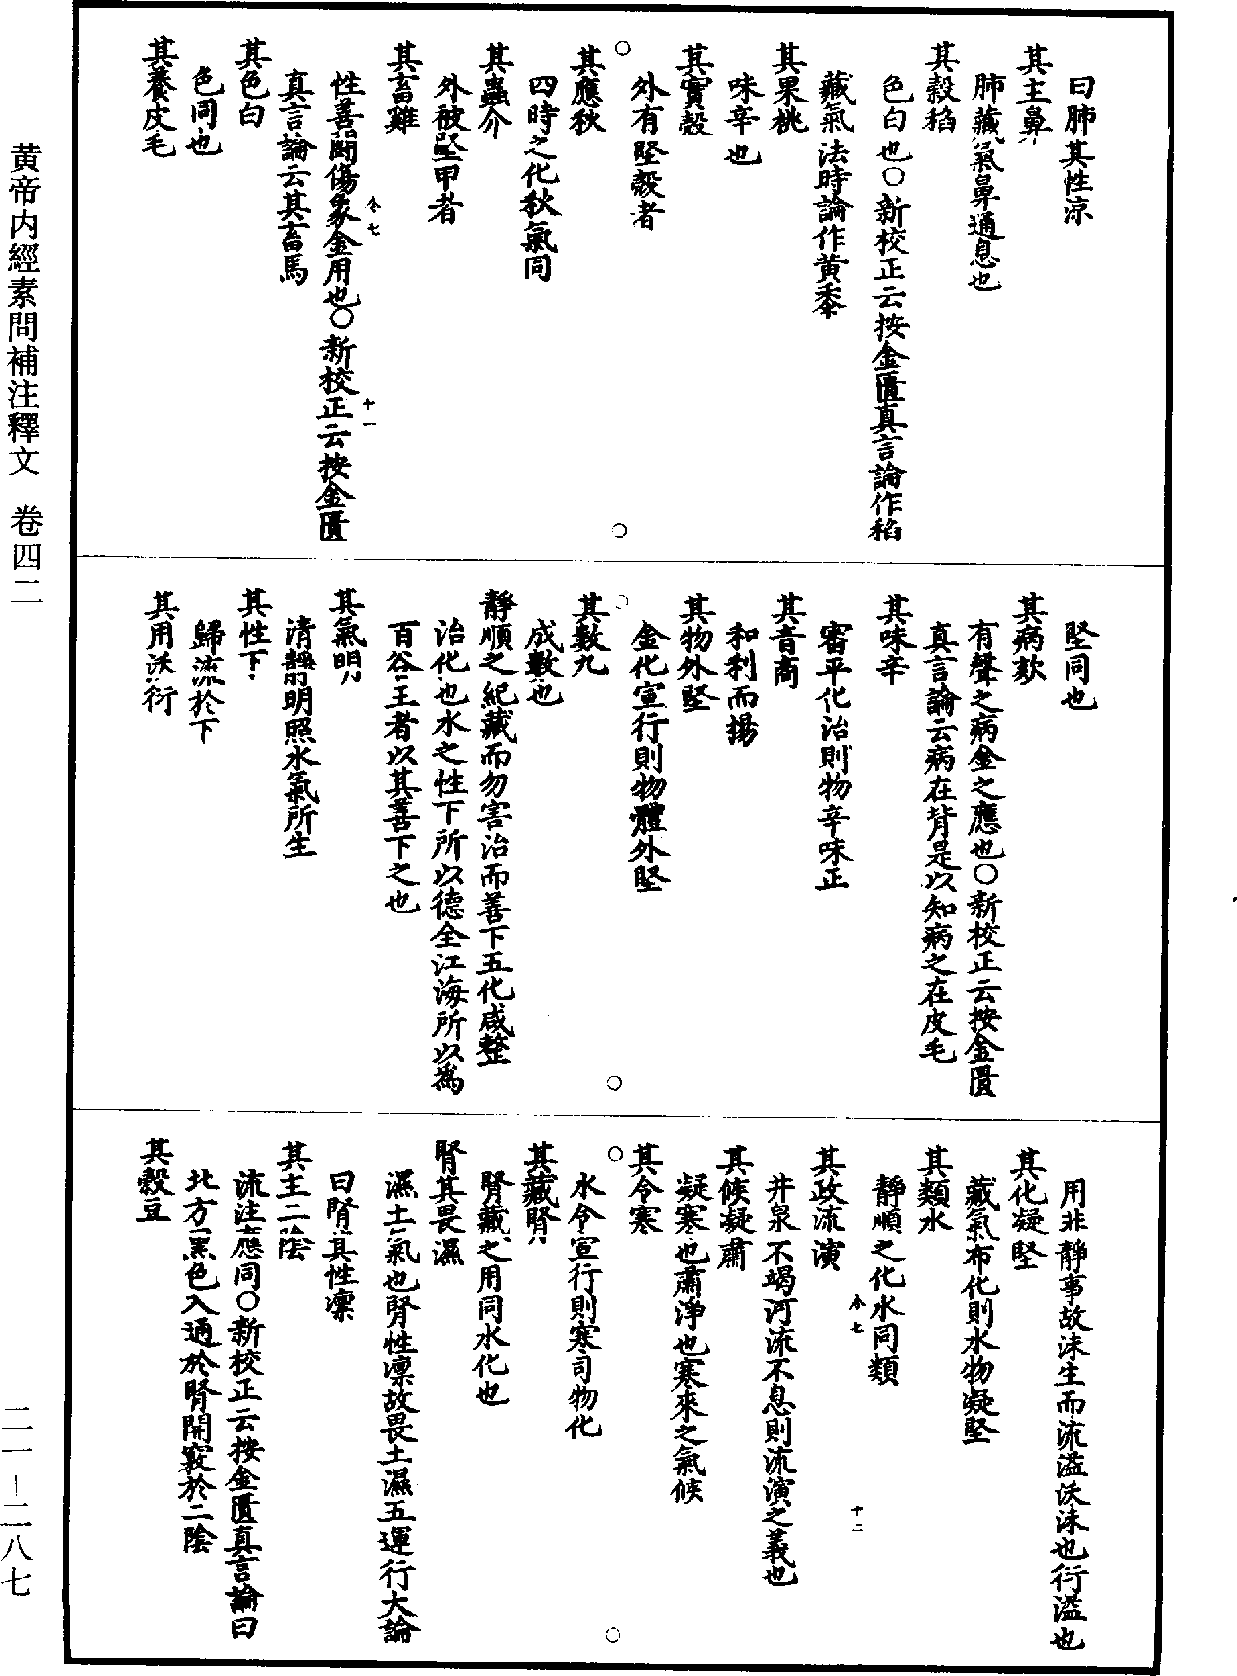 曰肺其性涼
其主鼻
肺藏氣鼻通息也
其穀稻
色白也○新校正云按金匱真言論作稻
藏氣法時論作黃黍
其果桃
味辛也
其實殼
外有堅殼者
其應秋
四時之化秋氣同
其蟲介
外被堅甲者
其畜雞
性善鬭傷象金用也○新校正云按金匱
真言論云其畜馬
其色白
色同也
其養皮毛
堅同也
其病欬
有聲之病金之應也○新校正云按金匱
真言論云病在背是以知病之在皮毛
其味辛
審平化治則物辛味正
其音商
和利而揚
其物外堅
金化宣行則物體外堅
其數九
成數也
靜順之紀藏而勿害治而善下五化咸整
治化也水之性下所以德全江海所以為
百谷王者以其善下之也
其氣明
清靜明照水氣所生
其性下
歸流於下
其用沃衍
用非靜事故沫生而流溢沃沫也衍溢也
其化凝堅
藏氣布化則水物凝堅
其類水
靜順之化水同類
其政流演
井泉不竭河流不息則流演之義也
其候凝肅
凝寒也肅淨也寒來之氣候
其令寒
水令宣行則寒司物化
其藏腎
腎藏之用同水化也
腎其畏濕
濕土氣也腎性凜故畏土濕五運行大論
曰腎其性凜
其主二陰
流注應同○新校正云按金匱真言論曰
北方黑色入通於腎開竅於二陰
其穀豆
黃帝内經素問補注釋文 卷四二
二一–二八七